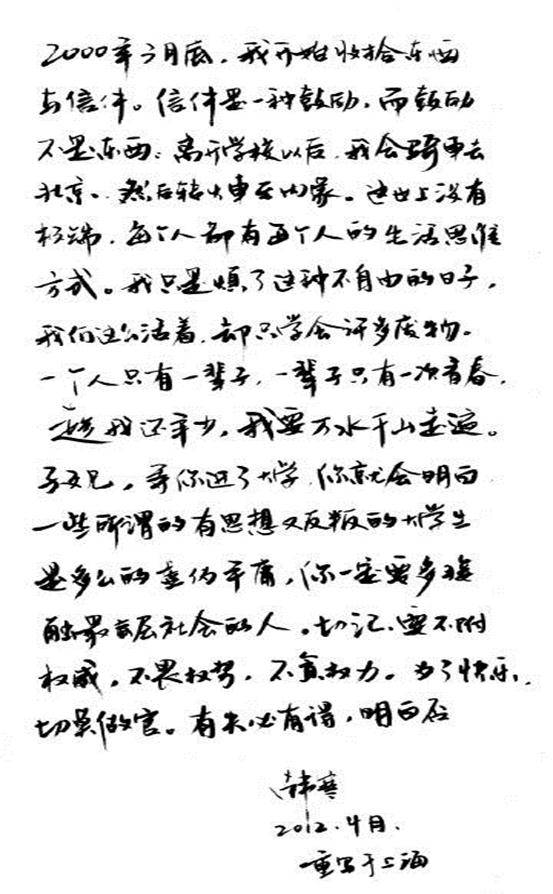 2000年3月底，我开始收拾东西
与信件。信件是一种鼓励，而鼓励
不是东西：离开学校以后，我会骑車去
北京，然后转火車至内蒙。这世上没有
极端，每个人都有每个人的生活思维
方式。我只是烦了这种不自由的日子，
我们这么活着，却只学会许多废物。
一个人只有一辈子，一辈子只有一次青春，
趁我还年少，我要万水千山走遍。
兄，等你进了大学，你就会明白
一些所谓的有思想又反叛的大学生
是多么的虚伪平庸，你一定要多接
触最底层社会的人。切记，要不附
权威，不畏权势，不贪权力。为了快乐，
切莫做官。有失必有得，明白否
韩寒
2012.4月.
重写于上海